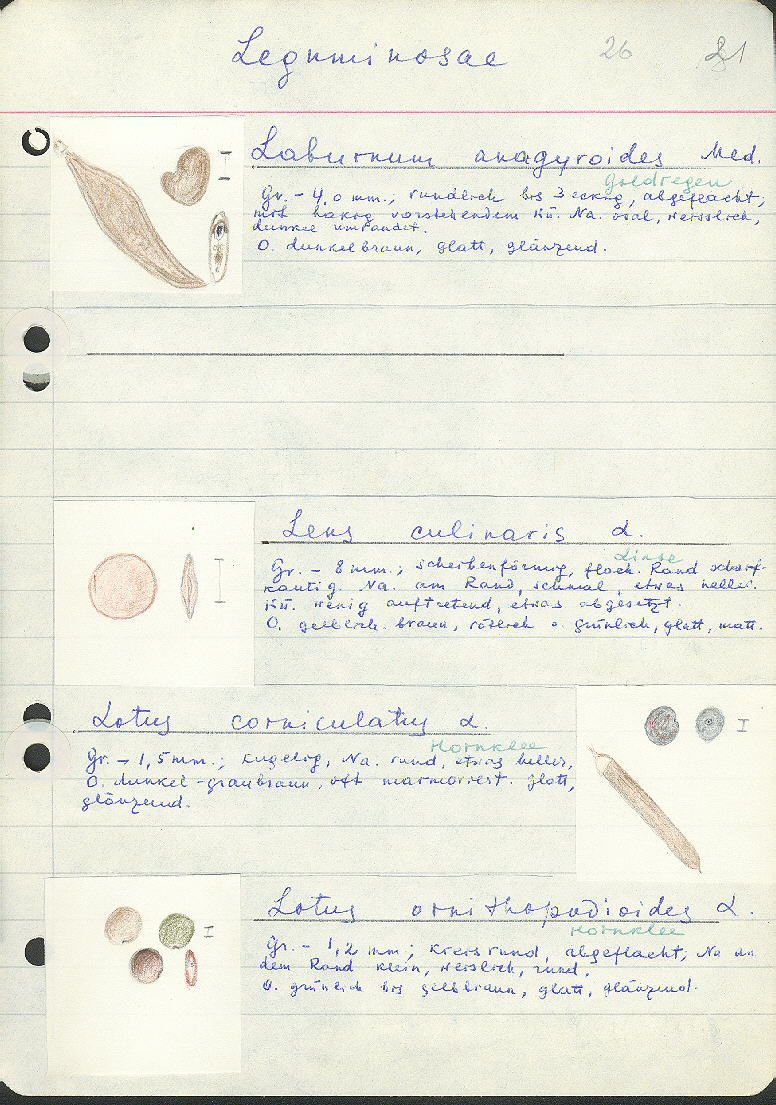 Leguminosae 26
Laburnum anagyroides Med.
Goldregen
Gr. - 4,0 mm.; rundlich bis 3 eckig, abgeflacht,
mit hakig vorstehendem Kü. Na. oval, weisslich,
dunkel umrandet.
O. dunkelbraun, glatt, glänzend.
Lens culinaris L.
Linse
Gr. - 8 mm.; scheibenförmig, flach. Rand scharf-
kantig. Na. am Rand, schmal, etwas heller.
Kü. wenig auftretend, etwas abgesetzt.
O. gelblich braun, rötlich o. grünlich, glatt, matt.
Lotus corniculatus L.
Hornklee
Gr. - 1,5 mm.; kugelig, Na. rund, etwas heller,
O. dunkel-graubraun, oft marmoriert. glatt,
glänzend.
Lotus ornithopodioides L.
Hornklee
Gr. - 1,2 mm; kreisrund, abgeflacht, Na an
dem Rand klein, weislich, rund.
O. grünlich bis gelbbraun, glatt, glänzend.